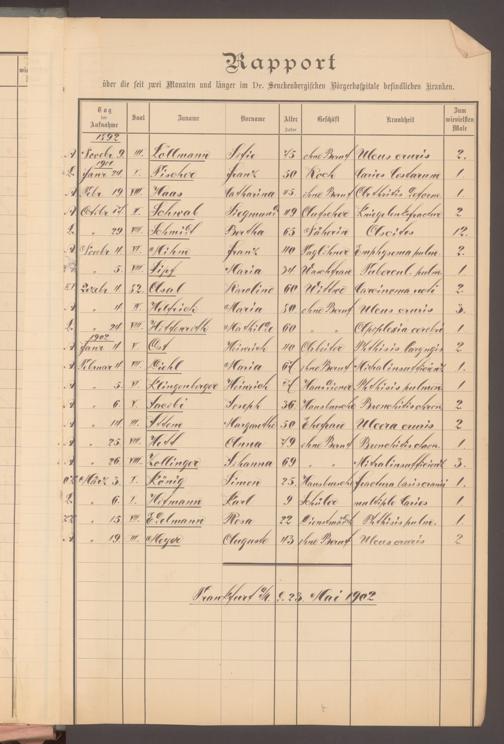 Rapport
über die seit zwei Monaten und länger im Dr. Senckenbergischen Bürgerhospitale befindlichen Kranken.
Tag der Aufnahme Saal Zuname Vorname Alter Jahre Geschäft Krankheit Zum wievielten Male
1892
A Novbr 9. III. Löllmann Sofie 75 ohne Beruf Ulcus cruris 2.
1901
Janr 24 I. Fischer Franz 50 Koch Caries Costarum 1.
A Febr. 19 VIII. Haas Catharina 75 ohne Beruf Arthritis deform. 1.
A Octbr V. Schwab Siegmund 49 Aufseher 2
" 29 VII. Schmidt Bertha 65 Näherin 12.
A Novbr 4 VI. Mihm Franz 40 Taglöhner Emphysema pulm. 2.
" 5 VII. Maria 24 Tubercul. pulm. 1.
Dezbr 4 Karoline 60 Wittwe Carcinoma 2
A " 4 Helfrich Maria 50 ohne Beruf Ulcus cruris 3.
" 24 VII. Mathilde 60 " " Apoplexia cerebri 1
1902
A Janr 4 V. Ost Heinrich 40 Arbeiter Phthisis laryngis 2
A Februar 4 VII. Diehl Maria 67 ohne Beruf Mitralinsufficienz 1.
A " 5 VI. Klingenberger Heinrich Hausdiener Phthisis pulmon. 1
" 6 V. Jacobi Joseph 36 Bronchitis chron. 2
A " 14 III. Margarethe 50 Ehefrau Ulcera cruris 2
A " 25 VIII. Anna 79 ohne Beruf Bronchitis chron. 1.
A " 26 VIII. Zollinger Johanna 69 " " Mitralinsufficienz 3.
März 3. I. König Simon 25. Fractura basis cranii 1
" 6. I. Hofmann Karl 9 Schüler multiple Caries 1
" 15 VII. Edelmann Rosa 22 Dienstmädch. Phthisis pulm. 1.
A " 19 III. Meyer Auguste 43 ohne Beruf Ulcus cruris 2
Frankfurt a/M. d. 23. Mai 1902